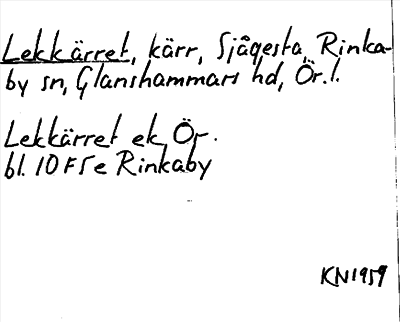 Lekkärret, kärr, Sjågesta, Rinka-
by sn, Glanshammars hd, Ör. l.
Lekkärret ek, Ör.
bl. 10 F 5 e Rinkaby
KN 1959